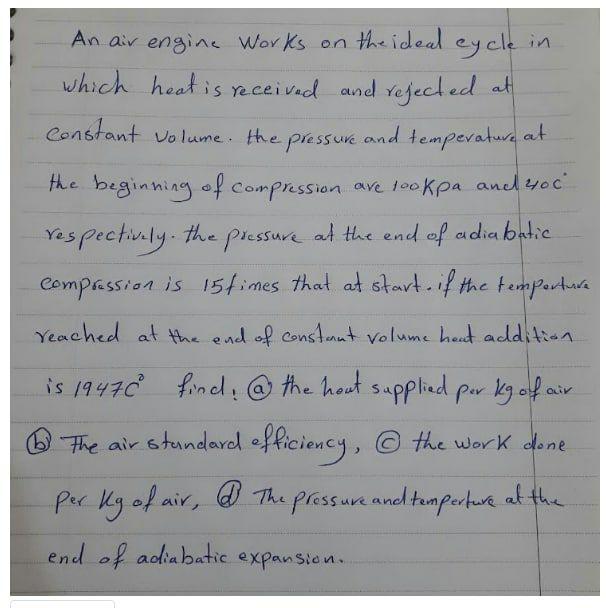 An air engine works on the ideal cycle in
which heat is received and rejected at
constant volume. the pressure and temperature at
the beginning of compression are 100kpa and 40c°
respectively. the pressure at the end of adiabatic
compression is 15 times that at start. if the temperture
reached at the end of constant volume heat addition
is 1947c° find: ⓐ the heat supplied per kg of air
ⓑ The air standard efficiency, ⓒ the work done
per kg of air, ⓓ The pressure and temperture at the
end of adiabatic expansion.